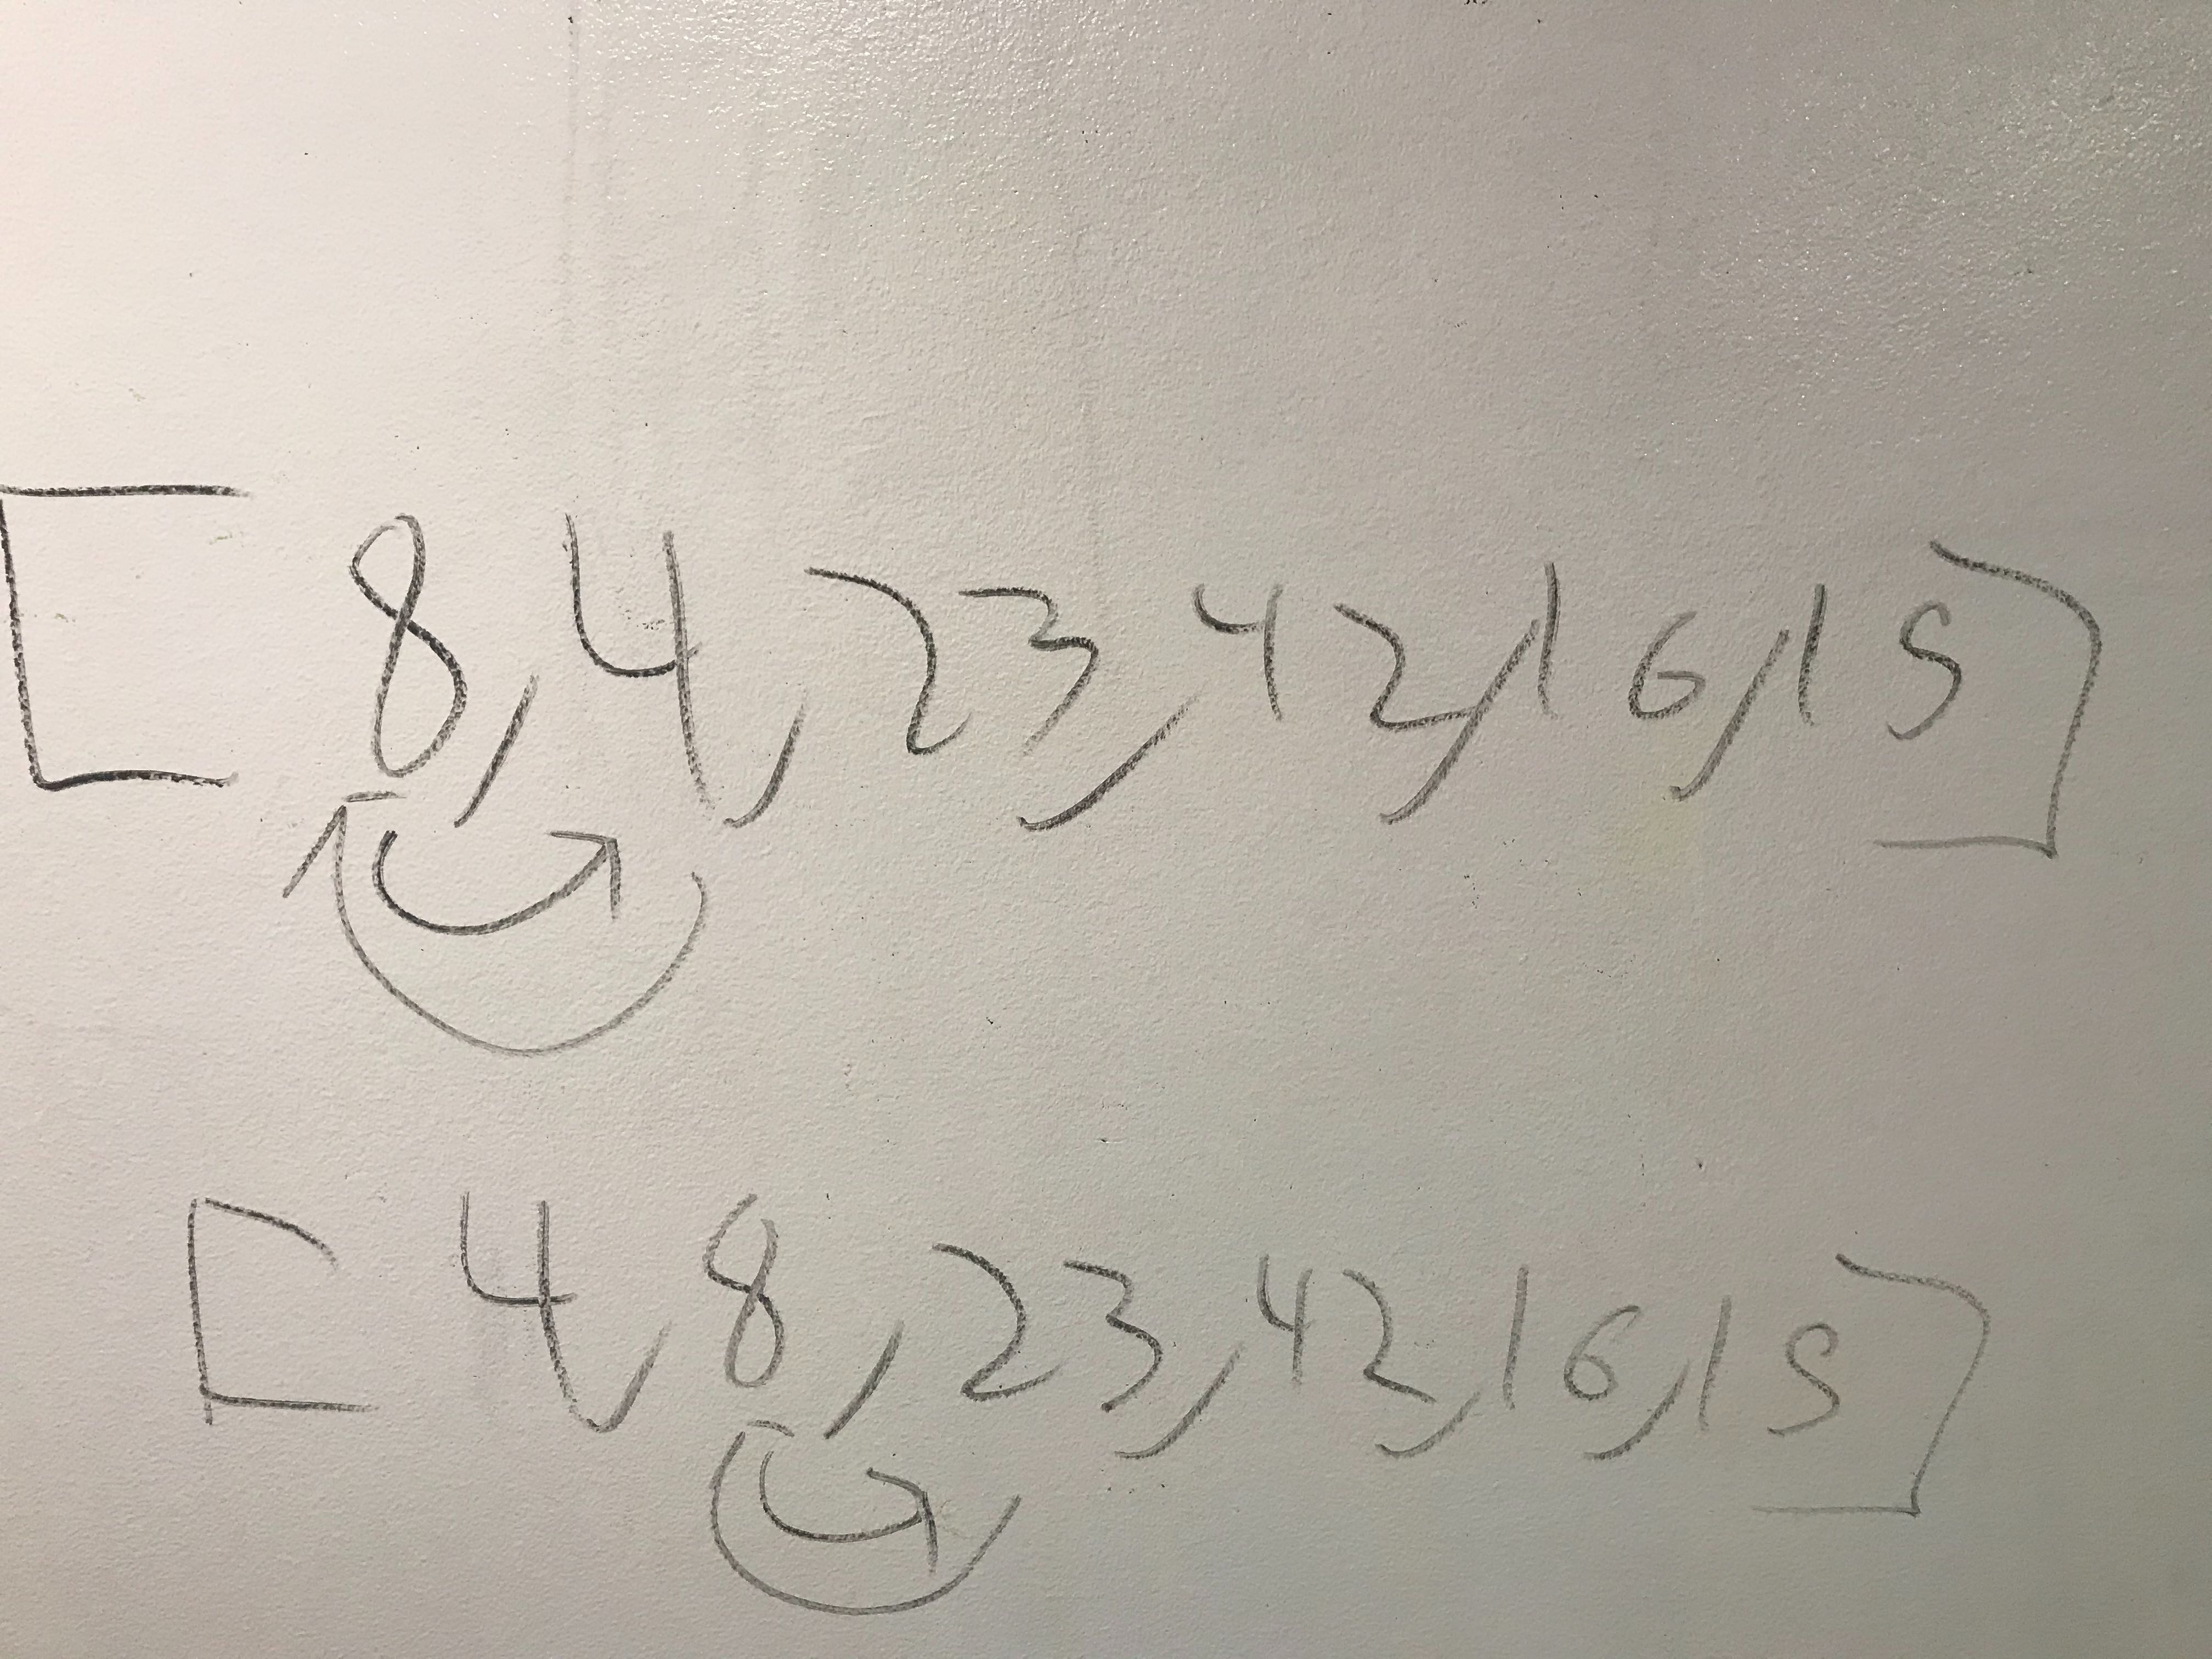 [8,4,23,42,16,15]
[4,8,23,42,16,15]